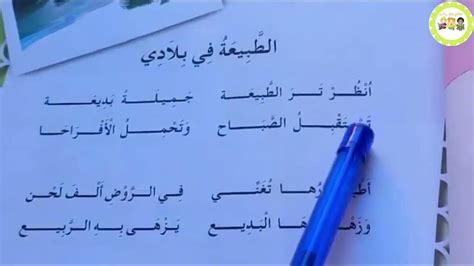 الطَّبِيعَةُ فِي بِلَادِي
أُنْظُرْ تَرَ الطَّبِيعَة جَمِيلَةً بَدِيعَة
الصَّبَاح وَتَحْمِلُ الْأَفْرَاحَا
تُغَنِّي فِي الرَّوْضِ أَلْفَ لَحْنِ
الْبَدِيع يَزْهَى بِهِ الرَّبِيع